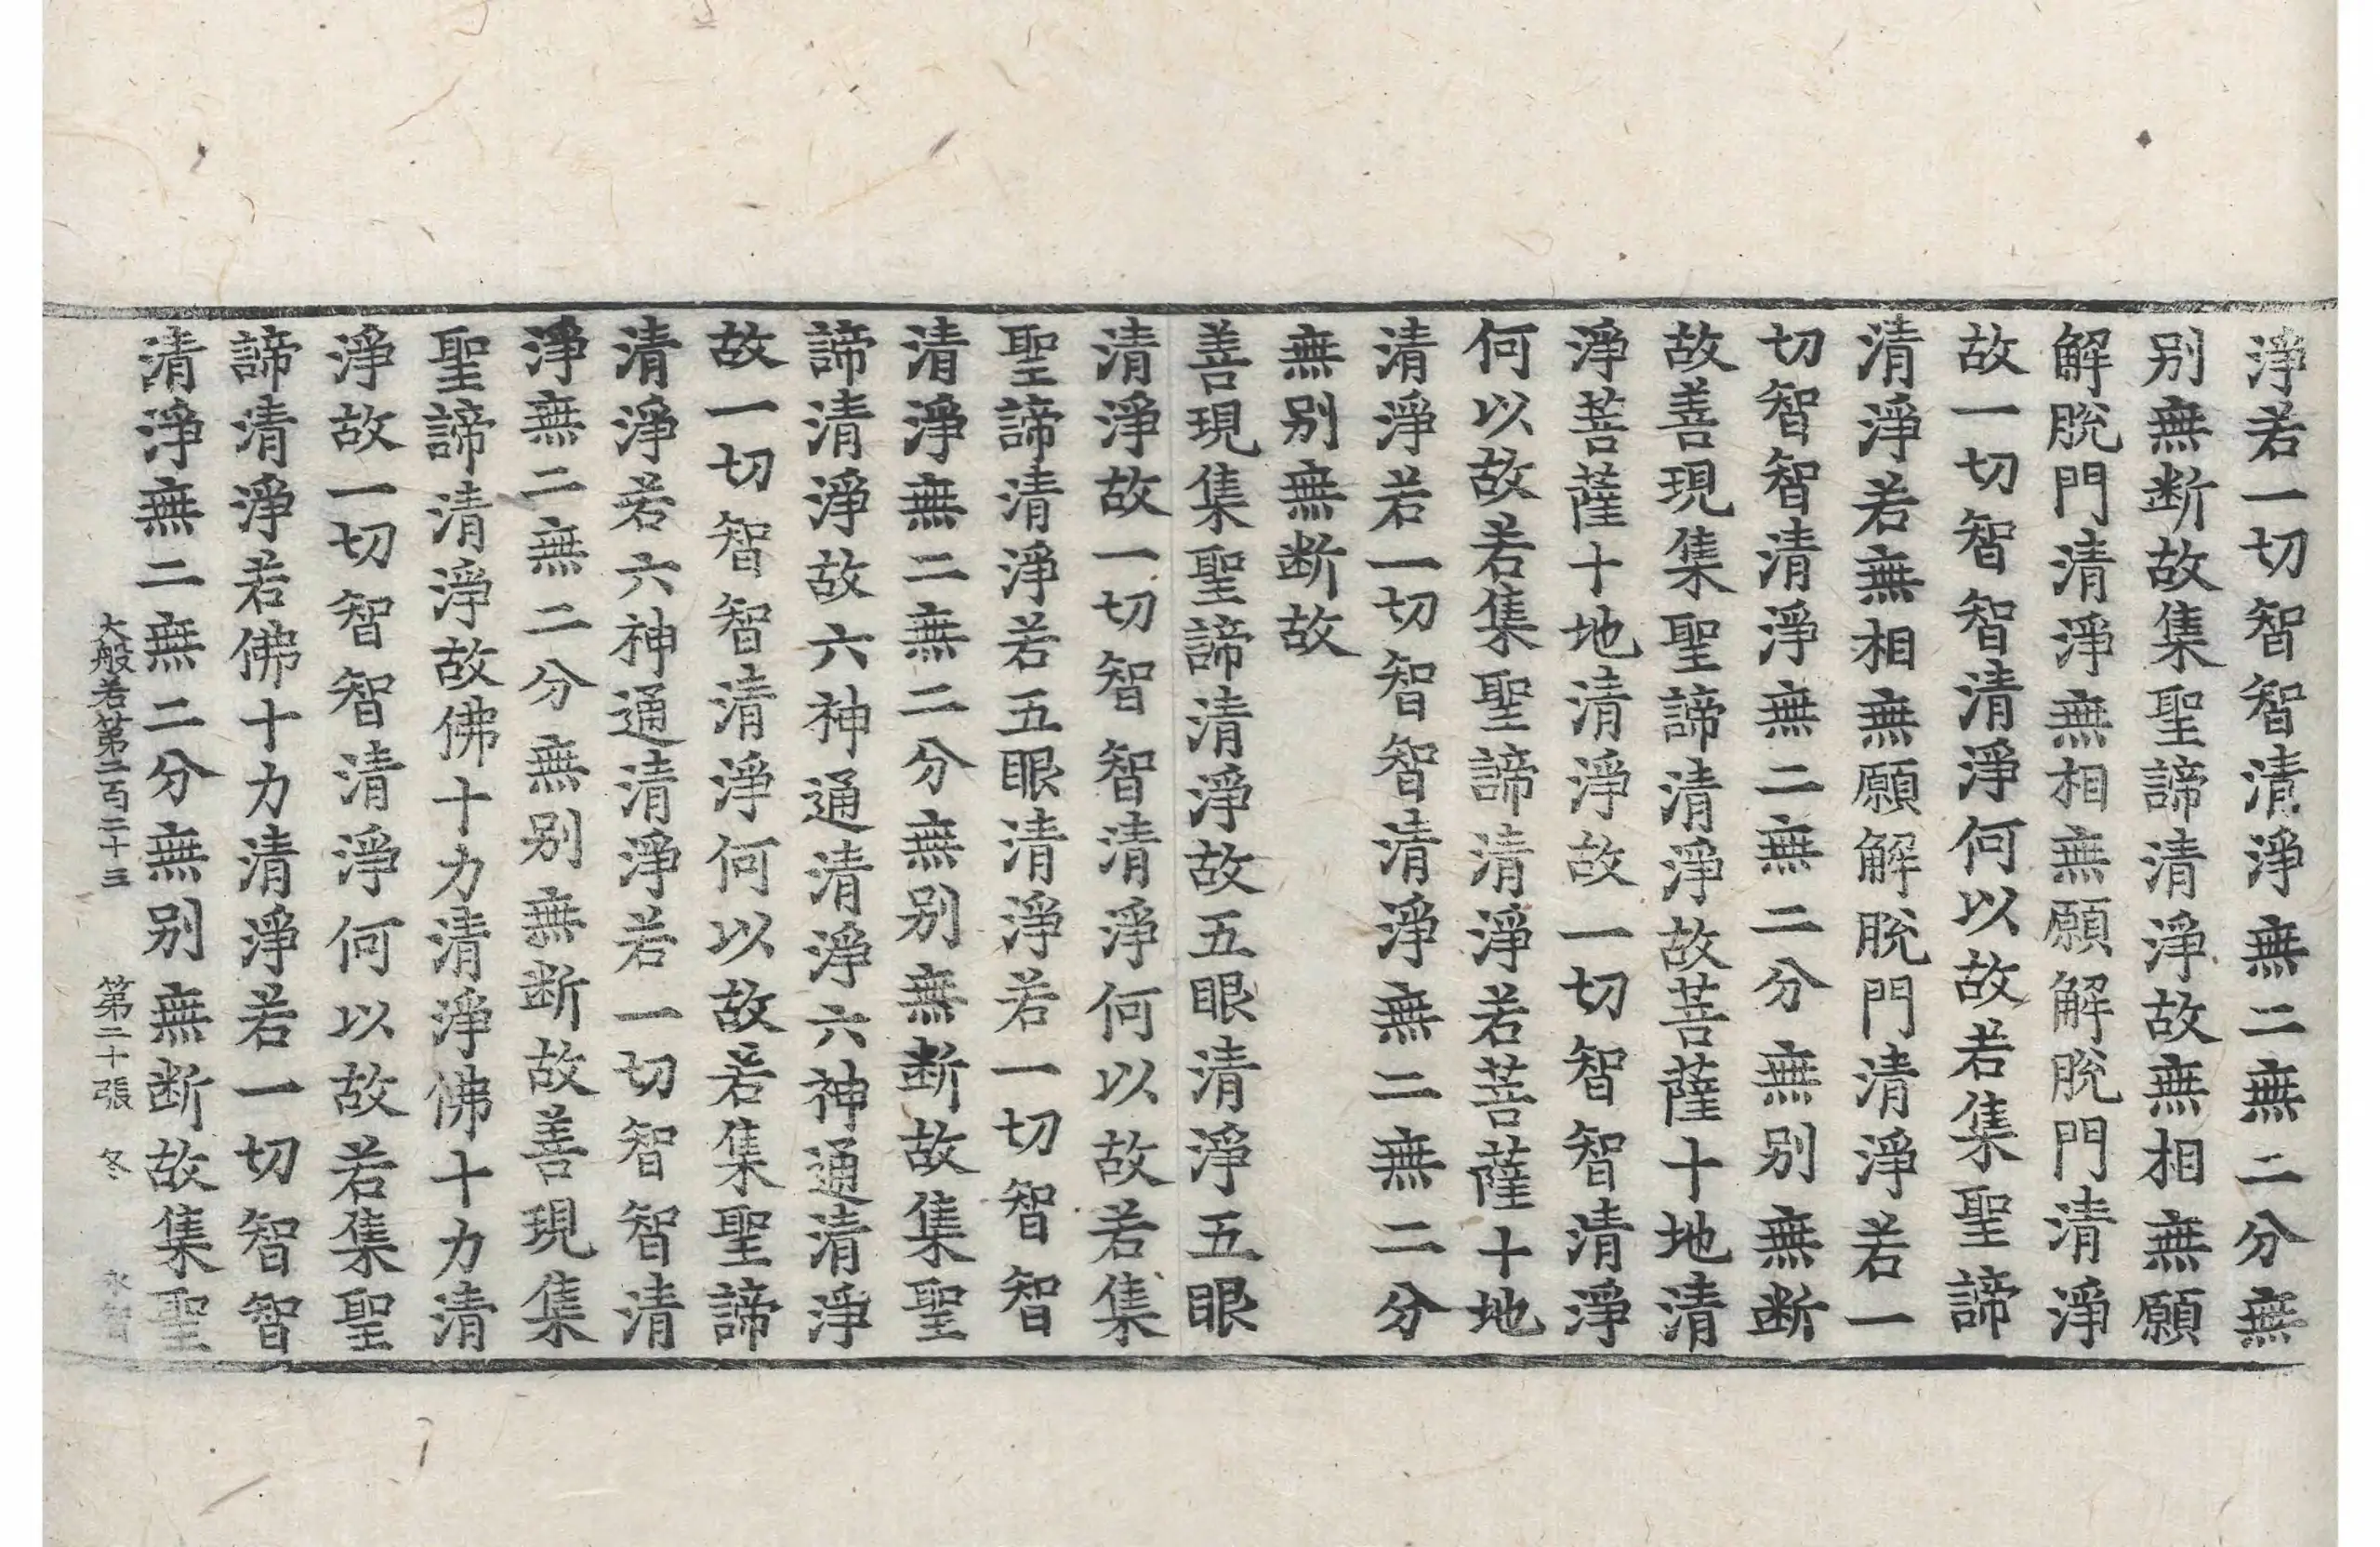 淨若一切智智清淨無二無二分無
別無断故集聖諦清淨故無相無願
解脫門清淨無相無願解脫門清淨
故一切智智清淨何以故若集聖諦
清淨若無相無願解脫門清淨若一
切智智清淨無二無二分無別無断
故善現集聖諦清淨故菩薩十地清
淨菩薩十地清淨故一切智智清淨
何以故若集聖諦清淨若菩薩十地
清淨若一切智智清淨無二無二分
無別無断故
善現集聖諦清淨故五眼清淨五眼
清淨故一切智智清淨何以故若集
聖諦清淨若五眼清淨若一切智智
清淨無二無二分無別無断故集聖
諦清淨故六神通清淨六神通清淨
故一切智智清淨何以故若集聖諦
清淨若六神通清淨若一切智智清
淨無二無二分無別無断故善現集
聖諦清淨故佛十力清淨佛十力清
淨故一切智智清淨何以故若集聖
諦清淨若佛十力清淨若一切智智
清淨無二無二分無別無断故集聖
大般若第二百二十三 第二十張 冬 永智